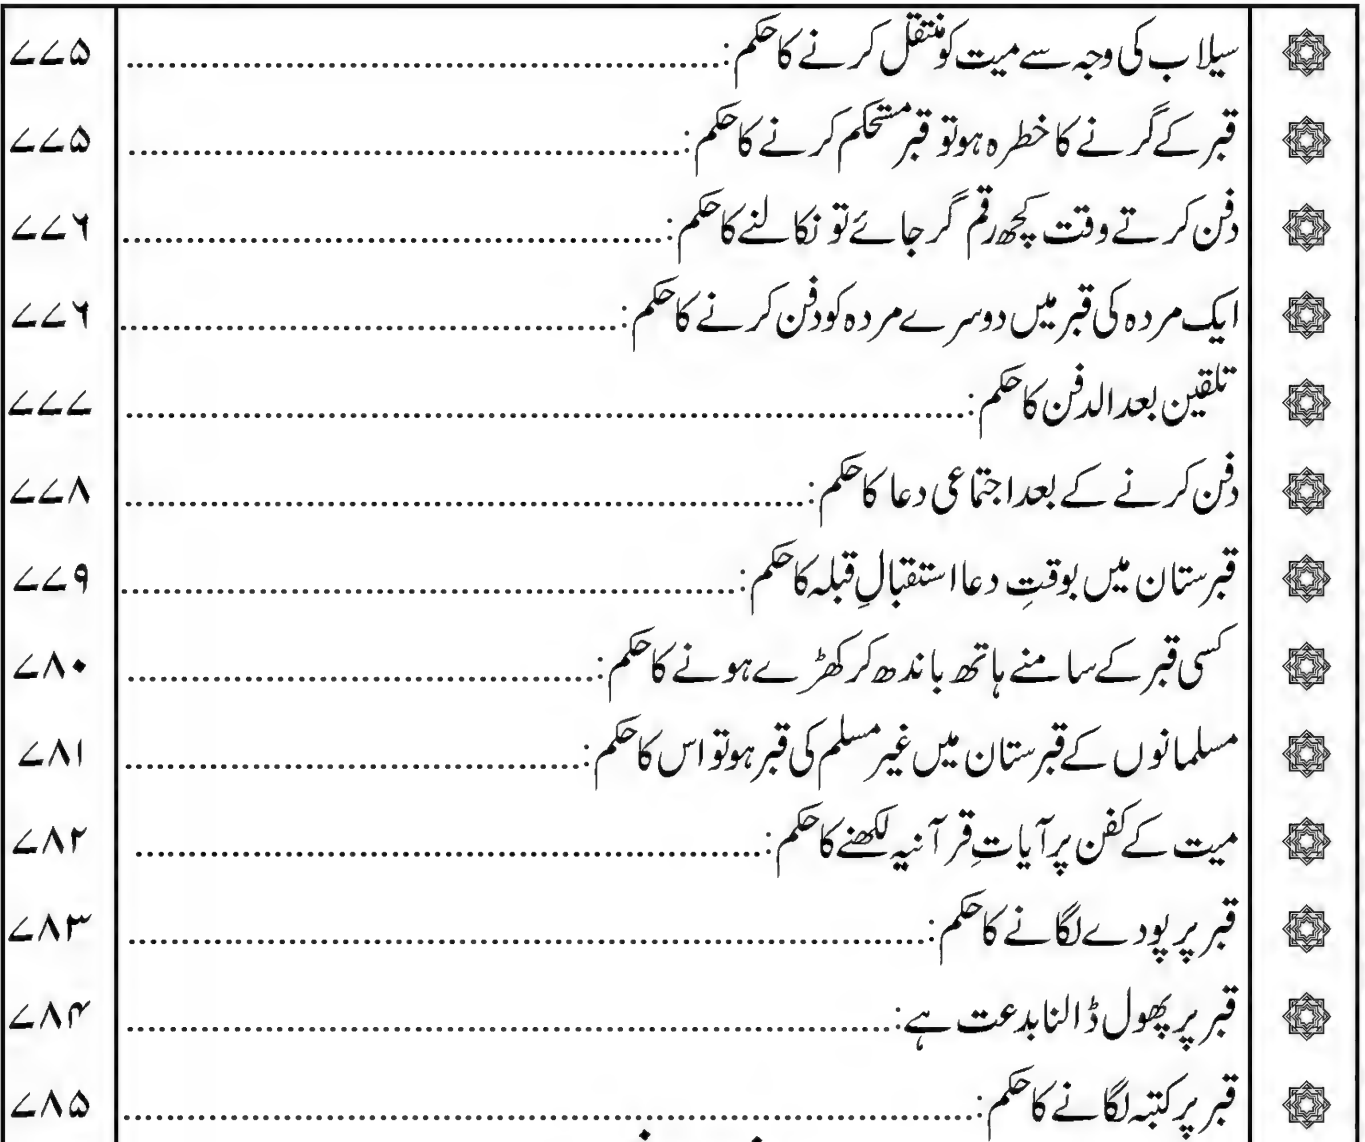 سیلاب کی وجہ سے میت کو منتقل کرنے کا حکم: ۷۷۵
قبر کے گرنے کا خطرہ ہو تو قبر مستحکم کرنے کا حکم: ۷۷۵
دفن کرتے وقت کچھ رقم گر جائے تو نکالنے کا حکم: ۷۷۶
ایک مردہ کی قبر میں دوسرے مردہ کو دفن کرنے کا حکم: ۷۷۶
تلقین بعد الدفن کا حکم: ۷۷۷
دفن کرنے کے بعد اجتماعی دعا کا حکم: ۷۷۸
قبرستان میں بوقتِ دعا استقبالِ قبلہ کا حکم: ۷۷۹
کسی قبر کے سامنے ہاتھ باندھ کر کھڑے ہونے کا حکم: ۷۸۰
مسلمانوں کے قبرستان میں غیر مسلم کی قبر ہو تو اس کا حکم: ۷۸۱
میت کے کفن پر آیاتِ قرآنیہ لکھنے کا حکم: ۷۸۲
قبر پر پودے لگانے کا حکم: ۷۸۳
قبر پر پھول ڈالنا بدعت ہے: ۷۸۴
قبر پر کتبہ لگانے کا حکم: ۷۸۵